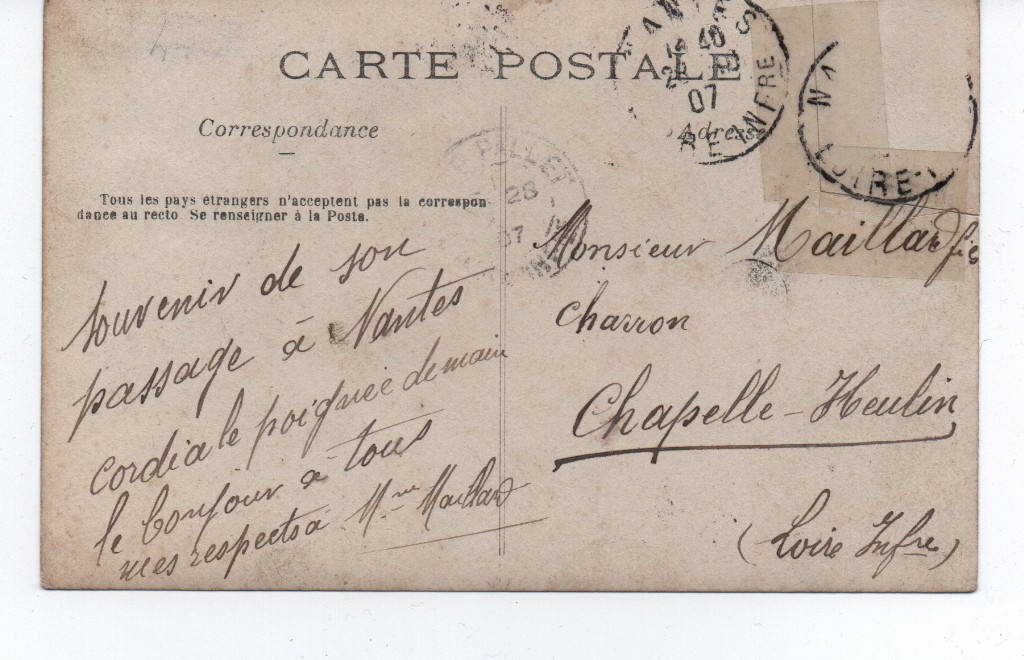 CARTE POSTALE
Correspondance
Adresse
Tous les pays étrangers n'acceptent pas la correspon
dance au recto. Se renseigner à la Poste.
souvenir de son
passage à Nantes
cordiale poignée de main
le bonjour à tous
mes respects à Mme Maillard
Monsieur Maillard fils
charron
Chapelle-Heulin
(Loire Infre)
NANTES
14 40
07
RE-INFRE
LOIRE-I
PALLET
28
07